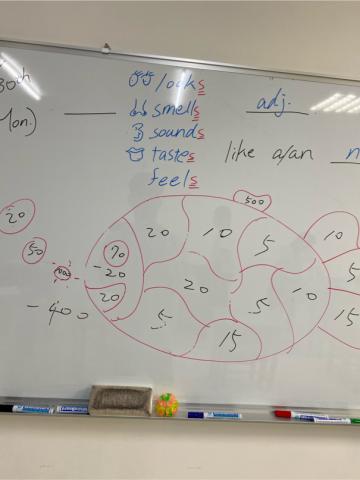 30th
Mon.)
looks
smells
sounds
tastes
feels
adj.
like a/an n
500
20
50
-400
70
-20
20
20
10
5
20
5
5
10
15
10
5
15